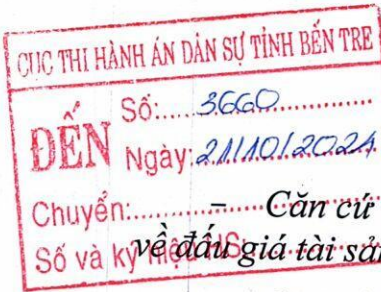 CỤC THI HÀNH ÁN DÂN SỰ TỈNH BẾN TRE
ĐẾN
Số: 3660
Ngày: 21/10/2024
Chuyển:
– Căn cứ
Số và ký hiệu HS
về đấu giá tài sản